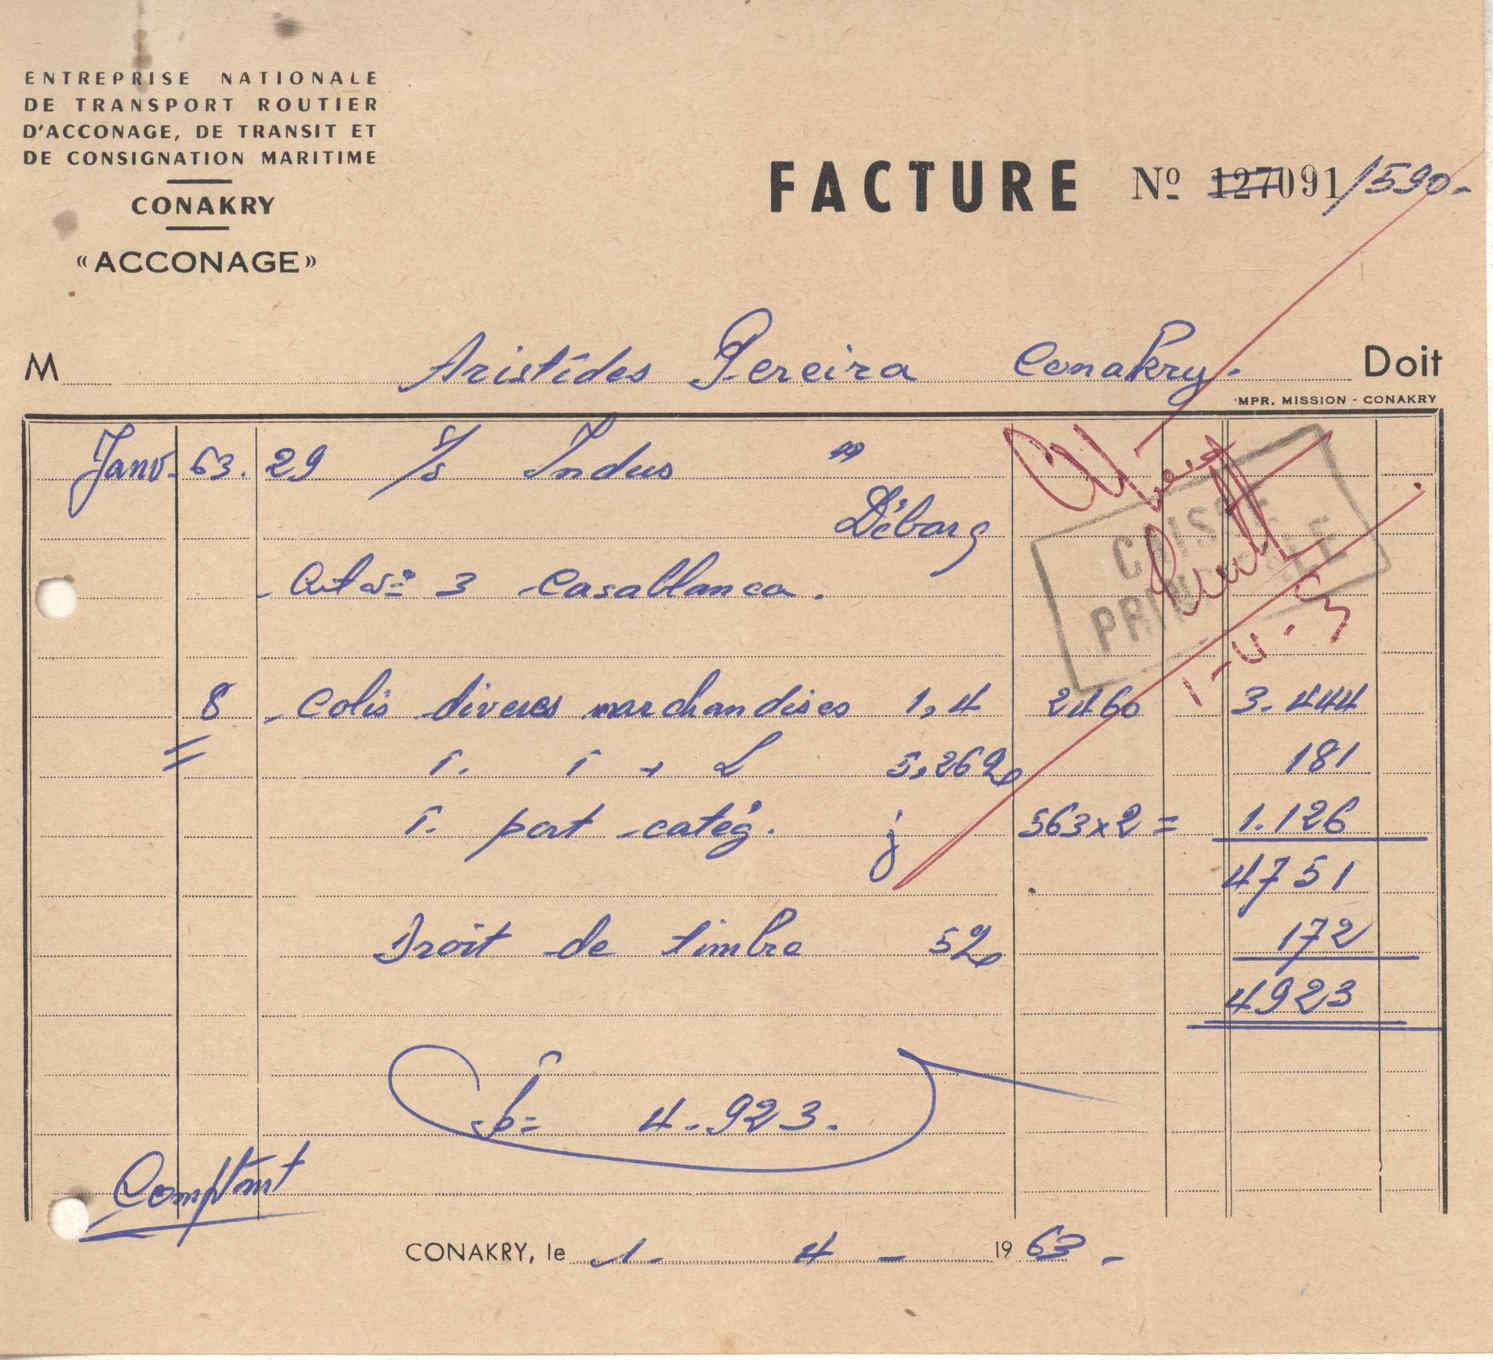 ENTREPRISE NATIONALE
DE TRANSPORT ROUTIER
D'ACCONAGE, DE TRANSIT ET
DE CONSIGNATION MARITIME
CONAKRY
« ACCONAGE »
FACTURE Nº 127091/590-
M Aristides Pereira Conakry. Doit
IMPR. MISSION - CONAKRY
Janv. 63. 29 S/s Indus "
Débarq
Art Nº 3 Casablanca.
CAISSE
PRINCIPALE
8 - Colis diverses marchandises 1,4 2460 3.444
T. T + L 5,26% 181
T. port catég. j 563x2 = 1.126
4751
Droit de timbre 5% 172
4923
4.923.
Comptant
CONAKRY, le 1- 4 - 1963-